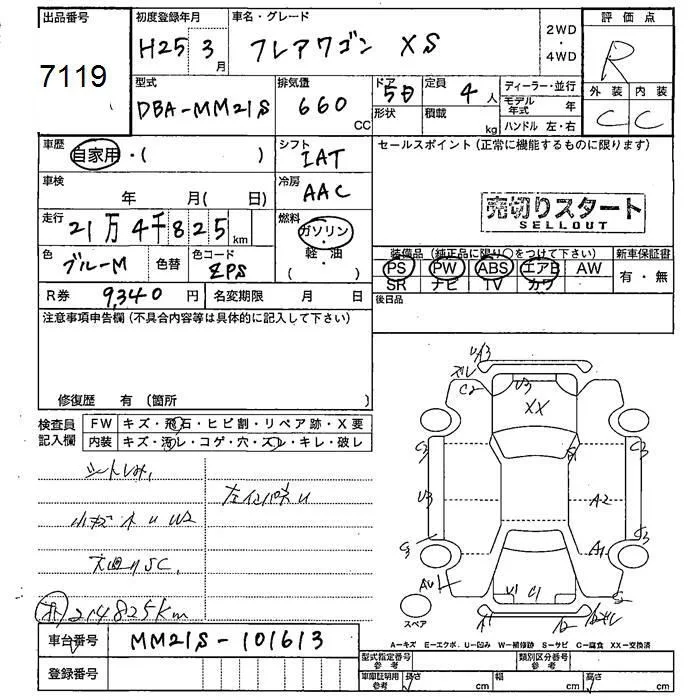 出品番号
7119
初度登録年月
H25 3月
車名・グレード
フレアワゴン XS
2WD
・
4WD
評価点
R
外装 内装
C C
型式
DBA-MM21S
排気量
660
CC
ドア
5日
形状
定員
4人
積載
kg
ディーラー・並行
モデル年式 年
ハンドル 左・右
車歴
自家用・( )
シフト
IAT
セールスポイント(正常に機能するものに限ります)
車検
年 月( 日)
冷房
AAC
売切りスタート
SELLOUT
走行
21万4千825km
燃料
ガソリン
・
軽・油
( )
色
ブルーM
色替
色コード
ZPS
装備品(純正品に限り○をつけて下さい)
新車保証書
PS PW ABS エアB AW
SR ナビ TV カワ
有・無
R券 9,340円
名変期限 月 日
後日品
注意事項申告欄(不具合内容等は具体的に記入して下さい)
修復歴 有(箇所 )
検査員
記入欄
FW キズ・飛石・ヒビ割・リペア跡・X要
内装 キズ・汚レ・コゲ・穴・スレ・キレ・破レ
シートしみ,
小キズ凹U W2
左インパネU
下廻りSC,
214825km
車台番号
MM21S-101613
登録番号
UA3
ズレ
C2
U3
XX
C2
C3
U3
A2
C3
S3
A1
AU
U1
C1
S2
スペア
A-キズ E-エクボ、U-凹み W-補修跡 S-サビ C-腐食 XX-交換済
型式指定番号
参考
類別区分番号
参考
車庫証明用
参考
長さ
cm
幅
cm
高さ
cm